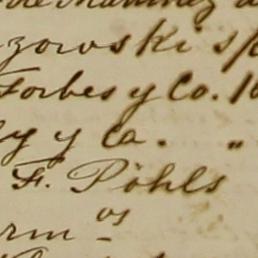 Martinez
zowski
Forbes y Co.
y y Ca. "
F. Pohls
erm os